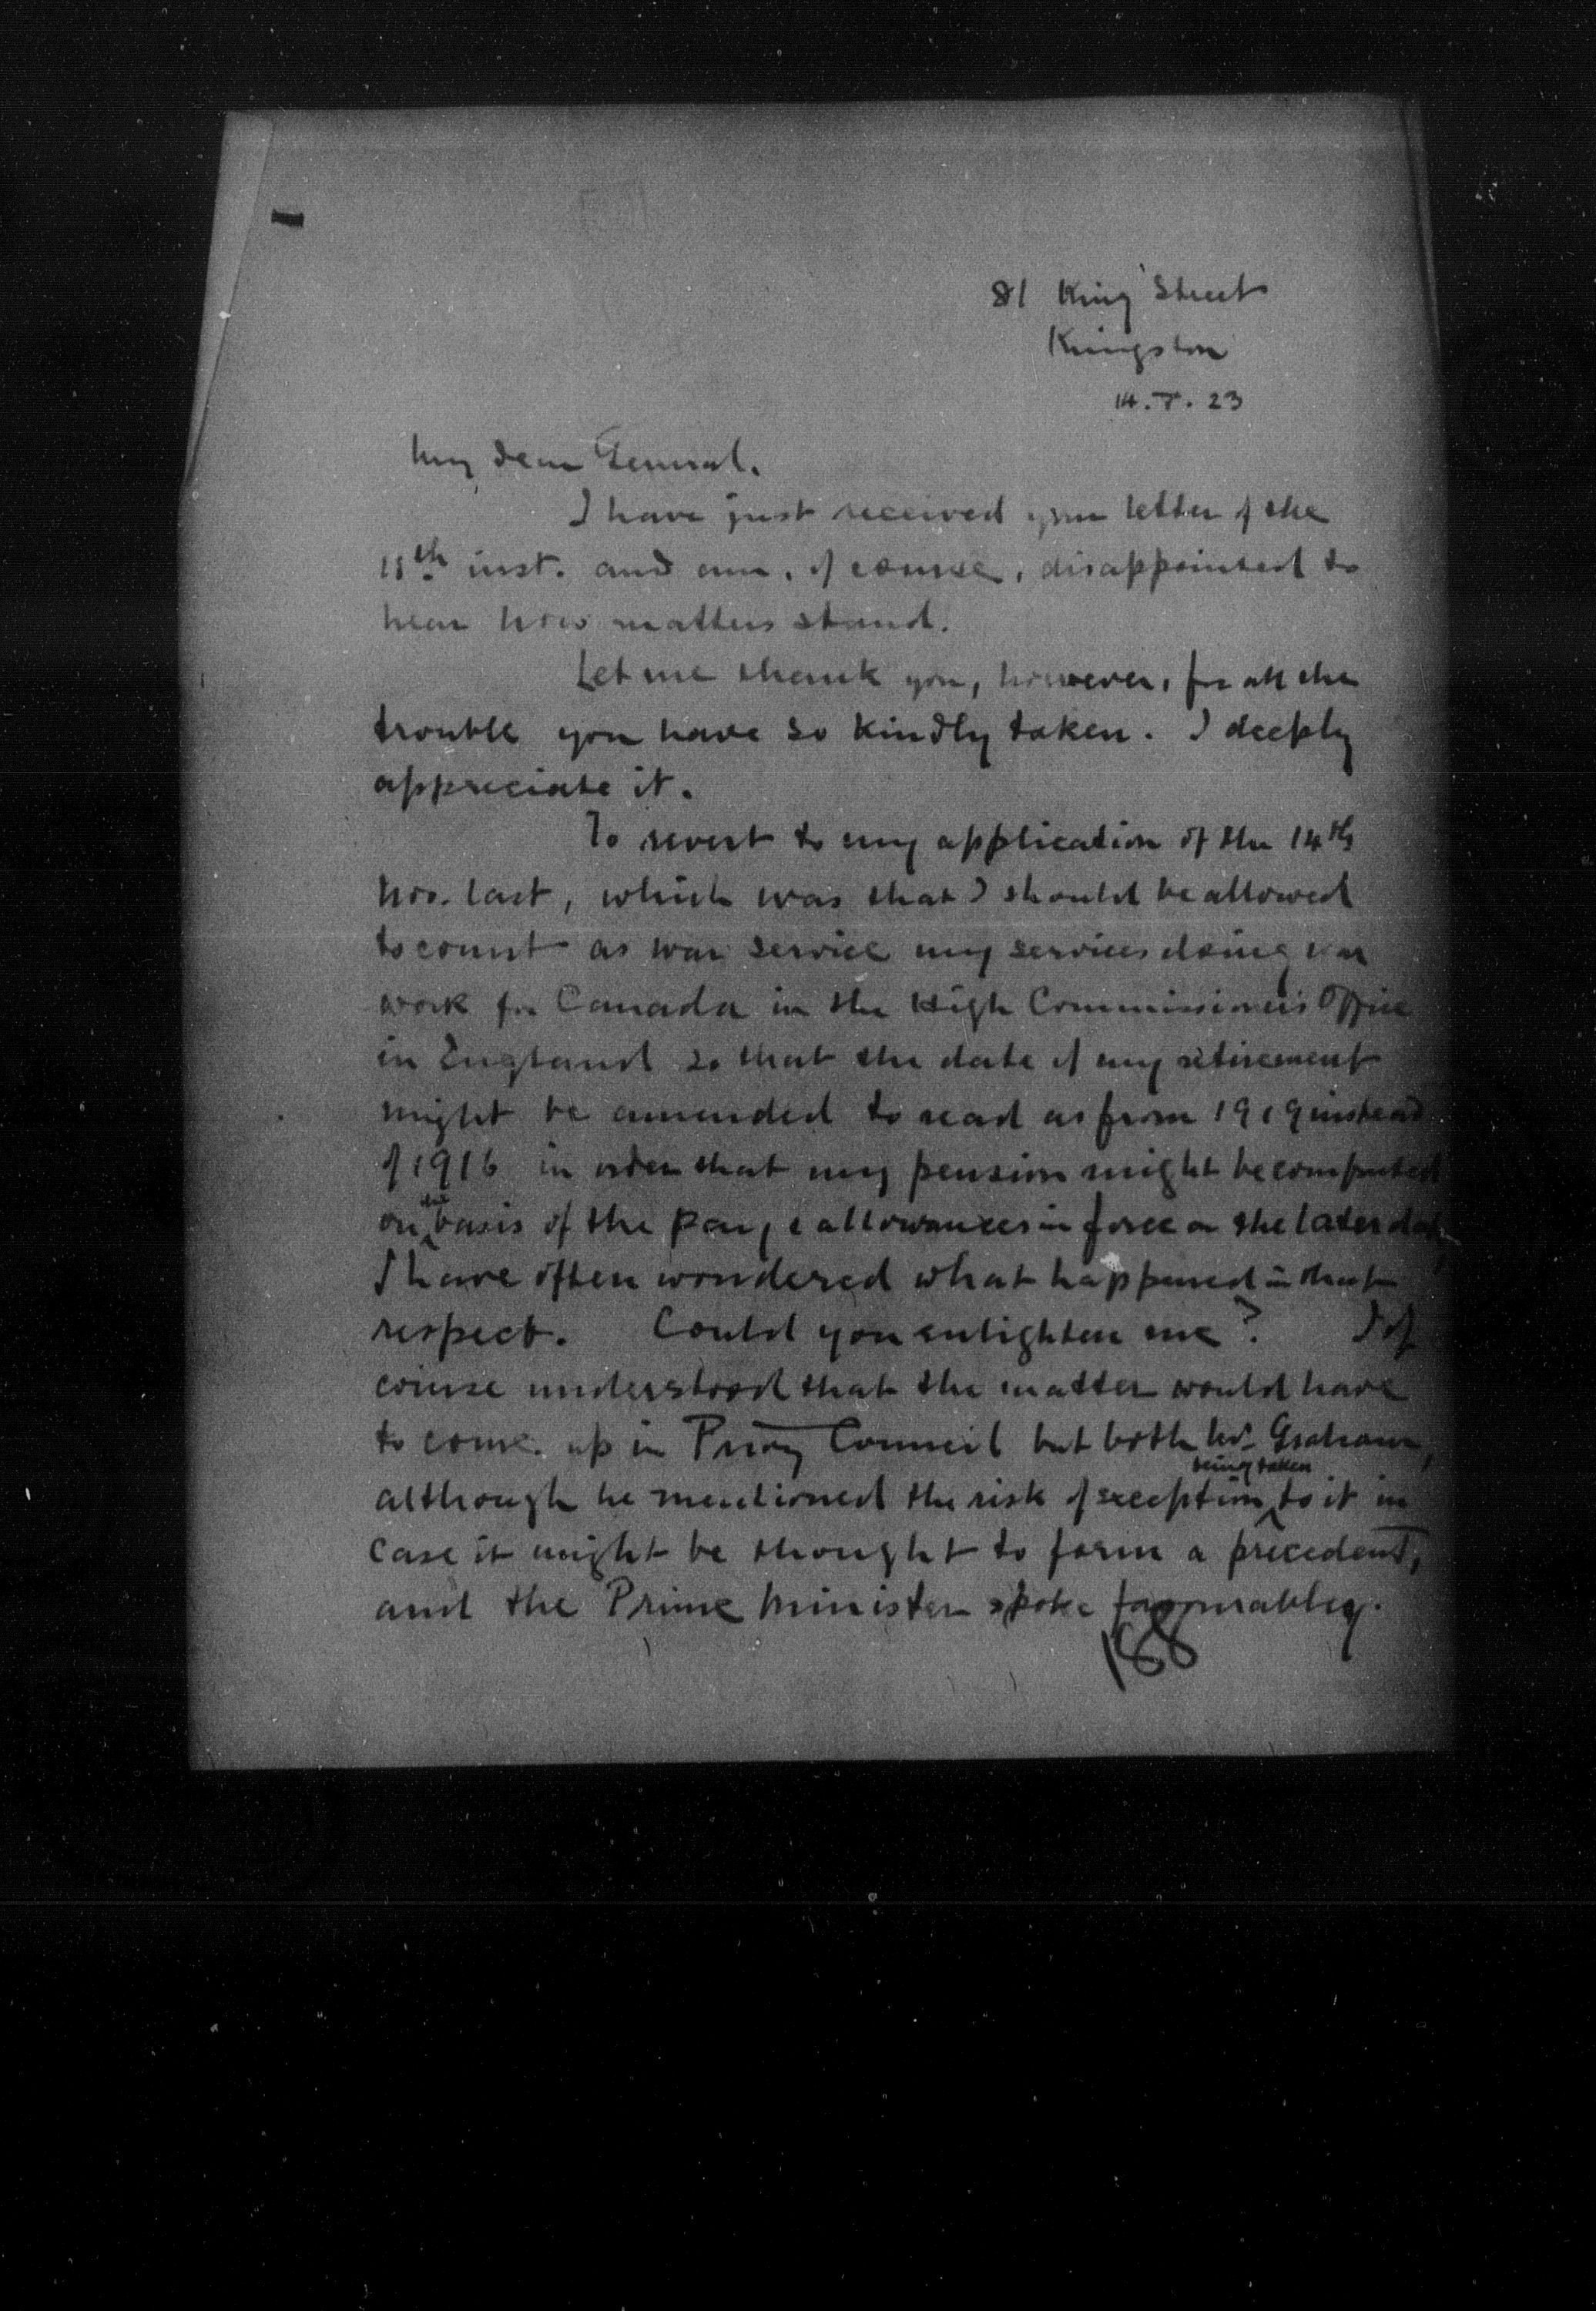 81 King Street
Kingston
14. 23
My dear General.
I have just received your letter of the
11th inst. and am, of course, disappointed to
hear how matters stand.
Let me thank you, however, for all the
trouble you have so kindly taken. I deeply
appreciate it.
To revert to my application of the 14th
Nov. last, which was that I should be allowed
to count as war service my services doing war
work for Canada in the High Commissioner's Office
in England so that the date of my retirement
might be amended to read as from 1919 instead
of 1916 in order that my pension might be computed
on the basis of the pay & allowances in force on the later date,
I have often wondered what happened in that
respect. Could you enlighten me? I of
course understood that the matter would have
to come up in Privy Council but both Mr. Graham,
although he mentioned the risk of exception being taken to it in
case it might be thought to form a precedent,
and the Prime Minister spoke favourably.
188